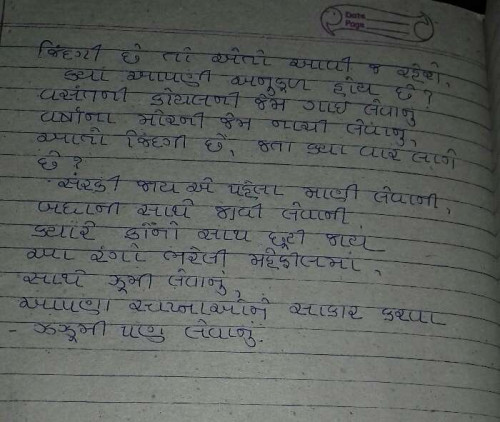 Date
Page
જિંદગી છે તો એતો આવી જ રહેશે,
ક્યા આપણી અનુકૂળ હોય છે?
વસંતની કોયલની જેમ ગાઈ લેવાનું
વર્ષાના મોરની જેમ નાચી લેવાનું,
આતો જિંદગી છે, જતા ક્યા વાર લાગે
છે?
સરકી જાય એ પહેલા માણી લેવાની,
બધાની સાથે જીવી લેવાની
ક્યારે કોનો સાથ છૂટી જાય
આ રંગો ભરેલી મહેફીલમાં,
સાથે ઝૂમી લેવાનું,
આપણા સપનાઓને સાકાર કરવા
- ઝઝૂમી પણ લેવાનું.